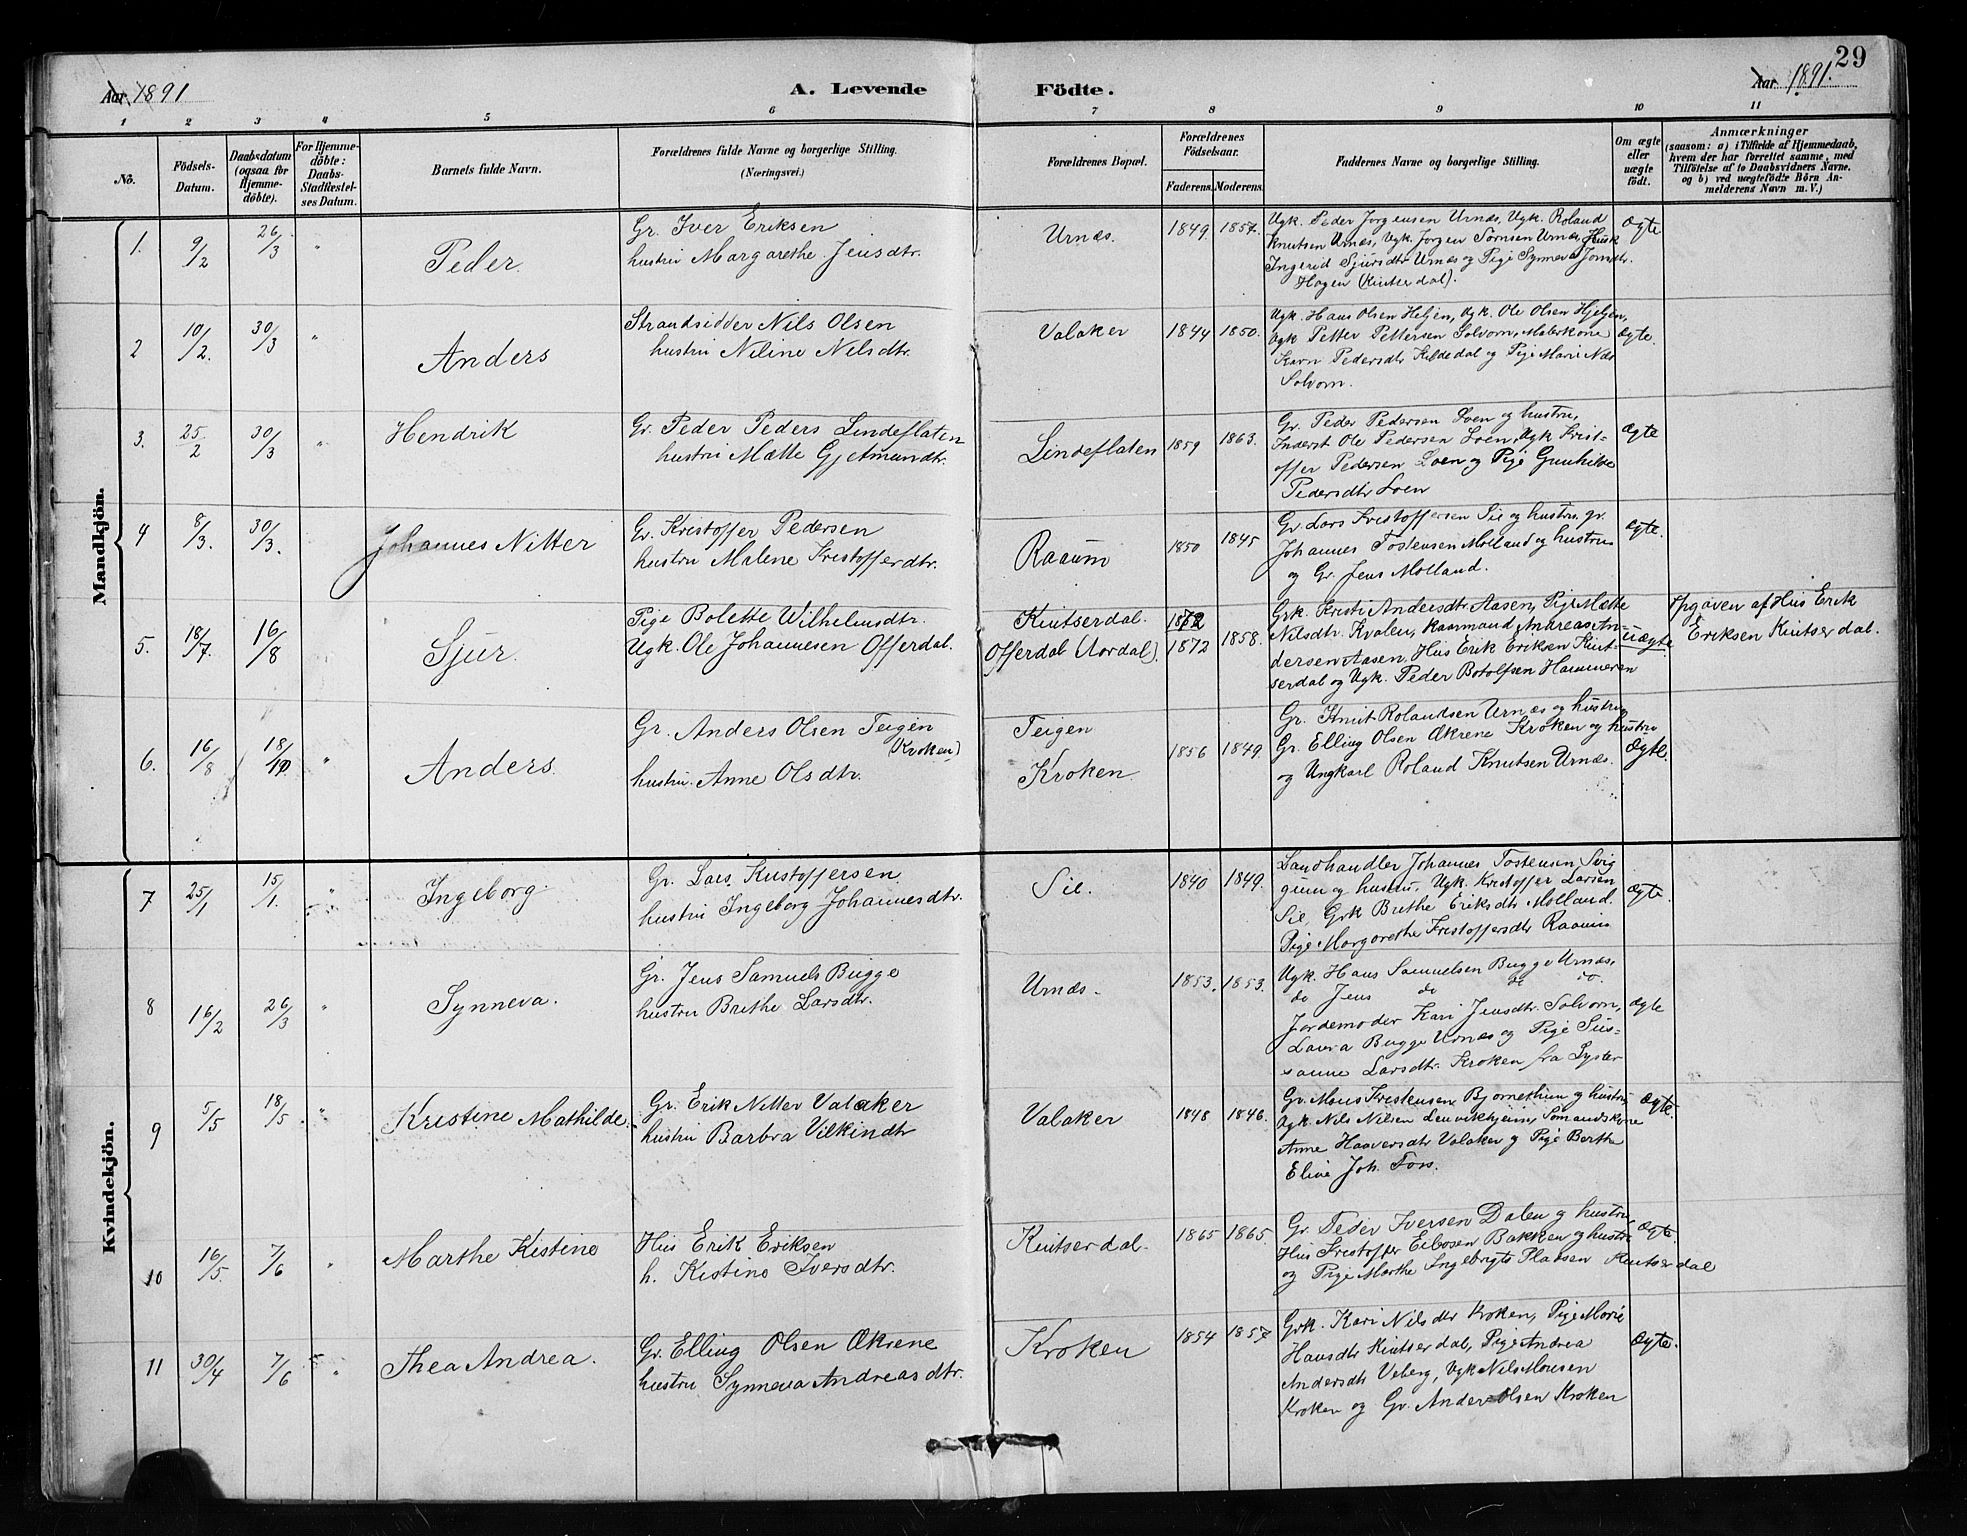 29
Aar 1891
A. Levende Födte.
Aar 1891.
1 2 3 4 5 6 7 8 9 10 11
No.
Födsels-Datum.
Daabsdatum (ogsaa for Hjemme-döbte).
For Hjemme-döbte: Daabs-Stadfæstel-ses Datum.
Barnets fulde Navn.
Forældrenes fulde Navne og borgerlige Stilling.
(Næringsvei.)
Forældrenes Bopæl.
Forældrenes Födselsaar.
Faderens. Moderens.
Faddernes Navne og borgerlige Stilling.
Om ægte eller uægte födt.
Anmærkninger
(saasom: a) i Tilfælde af Hjemmedaab,
hvem der har forrettet samme, med
Tilföielse af to Daabsvidners Navne,
og b) ved uægtefödte Börn An-
melderens Navn m. V.)
Mandkjön.
1. 9/2 26/3 " Peder.
Gr. Iver Eriksen
hustru Margarethe Jensdtr.
Urnæs. 1849. 1857.
Ugk. Peder Jorgensen Urnæs, Ugk. Roland
Knutsen Urnæs, Ugk. Jorgen Sornsen Urnæs, Husk
Ingerid Sjursdtr Urnæs og Pige Synneva Tjomdtr.
Hagen (Kintserdal).
Ægte
2 10/2. 30/3 " Anders
Strandsidder Nils Olsen
hustru Niline Nilsdtr.
Valaker 1844 1850.
Ugk. Hans Olsen Heljen, Ugk. Ole Olsen Hjeljen,
Ugk Petter Pettersen Solvorn, Malerkone
Karn Pedersdtr Kildedal og Pige Marie Næs
Solvorn.
Ægte.
3. 25/2 30/3 " Hendrik
Gr. Peder Peders Lindeflaten
hustru Mætte Gjetmundtr.
Lindeflaten 1859 1863.
Gr. Peder Pedersen Loen og hustru,
Inderst Ole Pedersen Loen, Ugk Krist-
offer Pedersen Loen og Pige Gunhilde
Pedersdtr Loen
Ægte
4 8/3. 30/3. Johannes Nitter
Gr. Kristoffer Pedersen
hustru Malene Kristofferdtr.
Raaum 1850 1845
Gr Lars Kristoffersen Sie og hustru, gr.
Johannes Tostensen Molland og hustru
og Gr. Jens Molland.
Ægte.
5. 18/7. 16/8 Sjur.
Pige Bolette Wilhelmsdtr.
Ugk. Ole Johannesen Offerdal.
Kintserdal.
Offerdal (Aordal).
1872 1858.
Grk. Kristi Andersdtr. Aasen, Pige Mætte
Nilsdtr. Kvalen, Kaarmand Andreas An-
dersen Aasen, Hus Erik Eriksen Kint-
serdal og Ugk. Peder Botolfsen Hammeren
uægte
Opgaven af Hus Erik
Eriksen Kintserdal.
6. 16/8 18/10 " Anders.
Gr. Anders Olsen Teigen
(Kroken)
hustru. Anne Olsdtr.
Teigen
Kroken.
1856 1849.
Gr. Knut Rolandsen Urnæs og hustru
Gr. Elling Olsen Ækrene Kroken og hustru
og Ungkarl Roland Knutsen Urnæs.
Ægte.
Kvindekjön.
7 25/1 15/1. " Ingeborg.
Gr. Lars Kristoffersen
hustru Ingeborg Johannesdtr.
Sie. 1840 1849.
Landhandler Johannes Tostensen Svig
gum og hustru, Ugk. Kristoffer Larsen
Sie, Grk Brithe Eriksdtr Molland.
Pige Margarethe Kristoffersdtr Raaum
Ægte.
8 16/2 26/3 " Synneva.
Gr. Jens Samuels Bugge
hustru Brithe Larsdtr.
Urnæs. 1853. 1853.
Ugk. Hans Samuelsen Bugge Urnæs,
do Jens do do do.
Jordemoder Kari Jensdtr. Solvorn,
Laura Bugge Urnæs og Pige Sus-
sanne Larsdtr. Kroken fra Lyster
Ægte
9 5/5 18/5 " Kristine Mathilde.
Gr. Erik Nitter Valaker
hustru Barbra Vilkindtr
Valaker 1848 1846.
Gr. Mons Kristensen Bjornethun og hustru
Ugk. Nils Nilsen Lenvikhjeim, Somandskone
Anne Haaversdtr Valaker og Pige Berthe
Eline Joh. Tors.
Ægte.
10 16/5 7/6 " Marthe Kistine
Hus Erik Eriksen
h. Kistine Iversdtr.
Kintserdal. 1865 1865.
Gr. Peder Iversen Dalen og hustru,
Hus Kristoffer Eibosen Bakken og hustru
og Pige Marthe Ingebrigts Pladsen Kintserdal
Ægte
11 30/4 7/6 " Thea Andrea.
Gr. Elling Olsen Ækrene
hustru Synneva Andreasdtr.
Kroken 1854 1857
Grk. Kari Nilsdtr Kroken, Pige Marie
Hansdtr Kintserdal, Pige Andrea
Andersdtr Veberg, Ugk Nils Monsen
Kroken og Gr. Anders Olsen Kroken
Ægte.